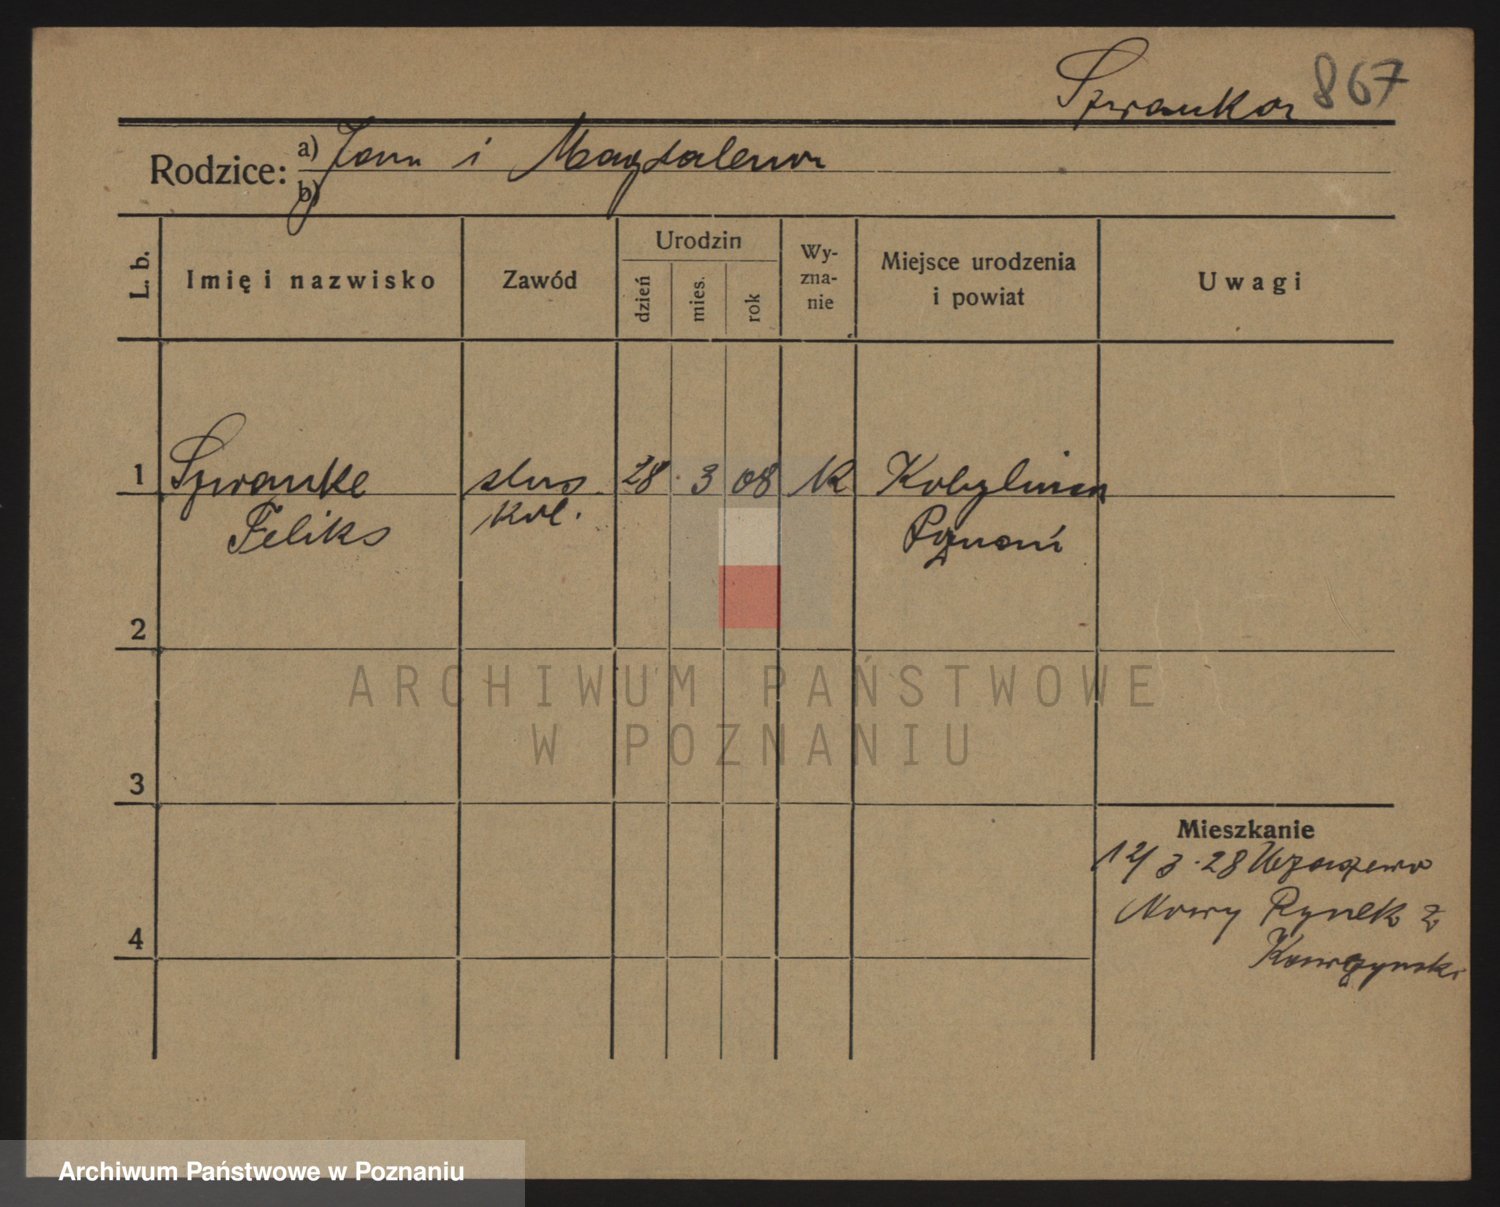 Szwanka 867
Rodzice: a) Jan i Magdalena
b)
L. b.
Imię i nazwisko
Zawód
Urodzin
dzień
mies.
rok
Wy-
zna-
nie
Miejsce urodzenia
i powiat
Uwagi
1 Szwanke ślus. 28 3 08 k Kobylnica
Feliks kol. Poznań
2
3
4
Mieszkanie
12/3.28
Nowy Rynek 2
ARCHIWUM PAŃSTWOWE
W POZNANIU
Archiwum Państwowe w Poznaniu